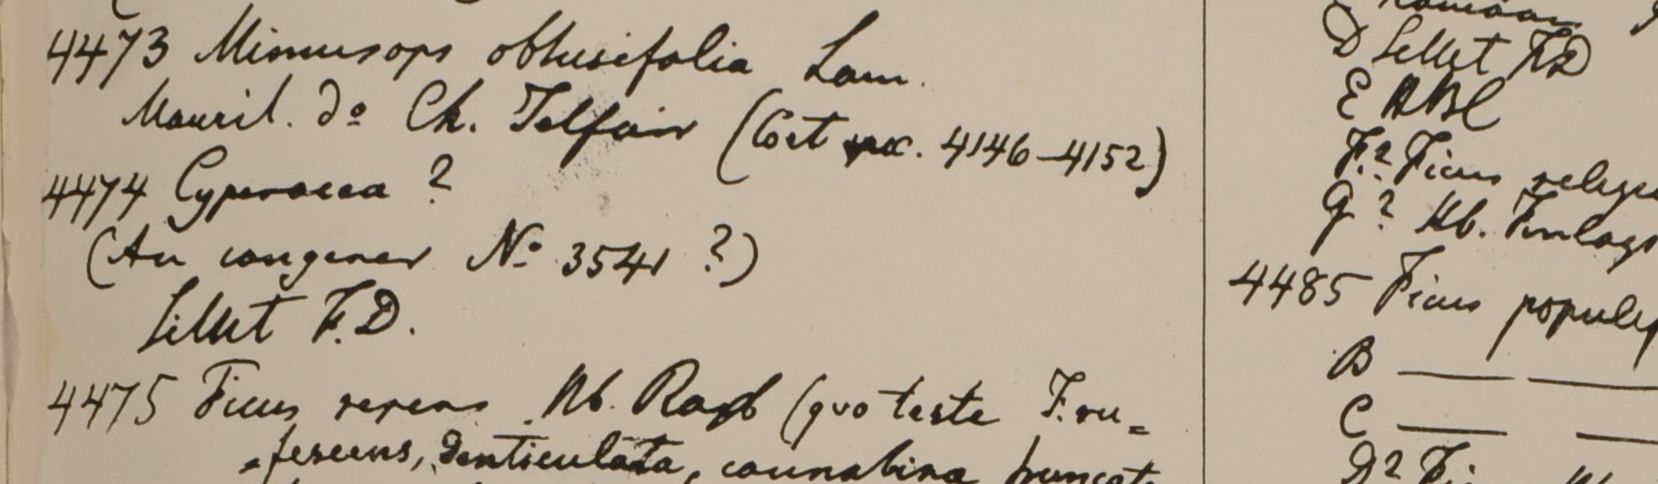 4473 Mimusops obtusifolia Lam.
Mauril. do Ch. Telfair (Cort 4146-4152)
4474 Cyperacea ?
(An congener No 3541 ?)
Sillet F.D.
4475 Ficus repens Hb. Roxb (quo teste F. ru=
fescens, denticulata, cannabina truncat
D Sillet F.D
E HBC
F.? Ficus religi
G ? Hb. Finlays
4485 Ficus populif
B
C
D? Fi